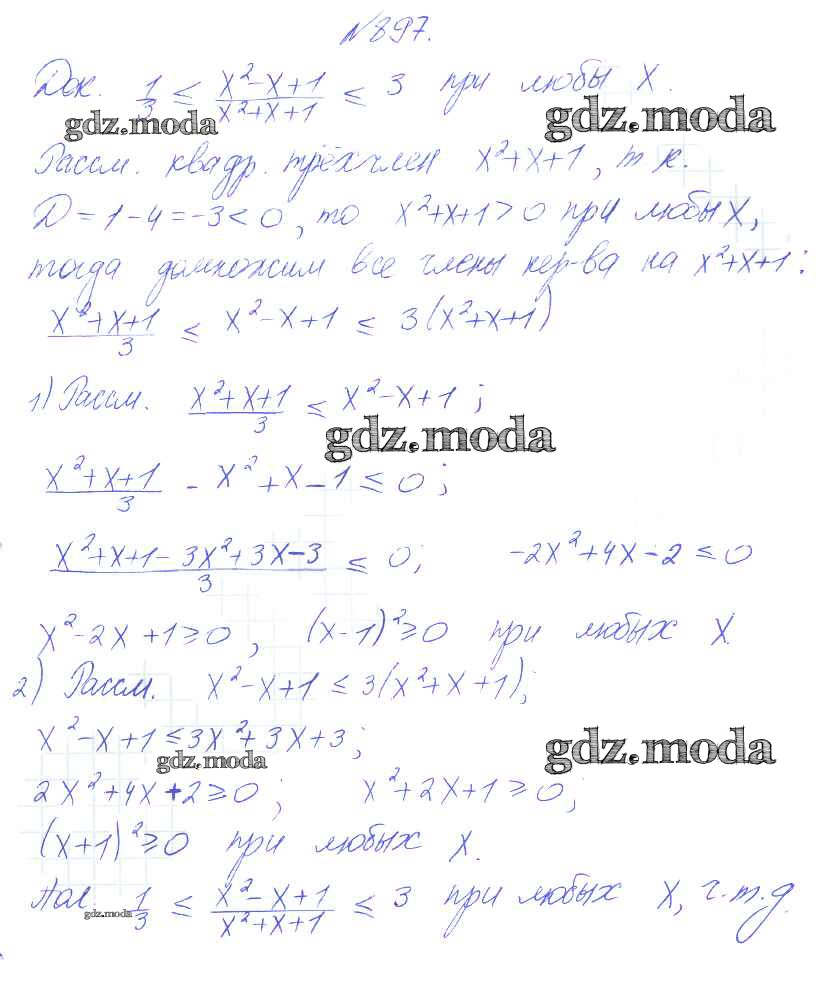 №897.
Док. 1/3 ≤ (x²-x+1)/(x²+x+1) ≤ 3 при любы x.
gdz.moda gdz.moda
Рассм. квадр. трёхчлен x²+x+1, т к.
D = 1-4 = -3 < 0, то x²+x+1>0 при любы x,
тогда домножим все члены нер-ва на x²+x+1:
(x²+x+1)/3 ≤ x²-x+1 ≤ 3(x²+x+1)
1) Рассм. (x²+x+1)/3 ≤ x²-x+1;
gdz.moda
(x²+x+1)/3 - x²+x-1 ≤ 0;
(x²+x+1-3x²+3x-3)/3 ≤ 0; -2x²+4x-2 ≤ 0
x²-2x+1≥0, (x-1)²≥0 при любых x
2) Рассм. x²-x+1 ≤ 3(x²+x+1);
x²-x+1 ≤ 3x²+3x+3;
gdz.moda gdz.moda
2x²+4x+2≥0; x²+2x+1≥0;
(x+1)²≥0 при любых x.
1/3 ≤ (x²-x+1)/(x²+x+1) ≤ 3 при любых x, ч.т.д.
gdz.moda